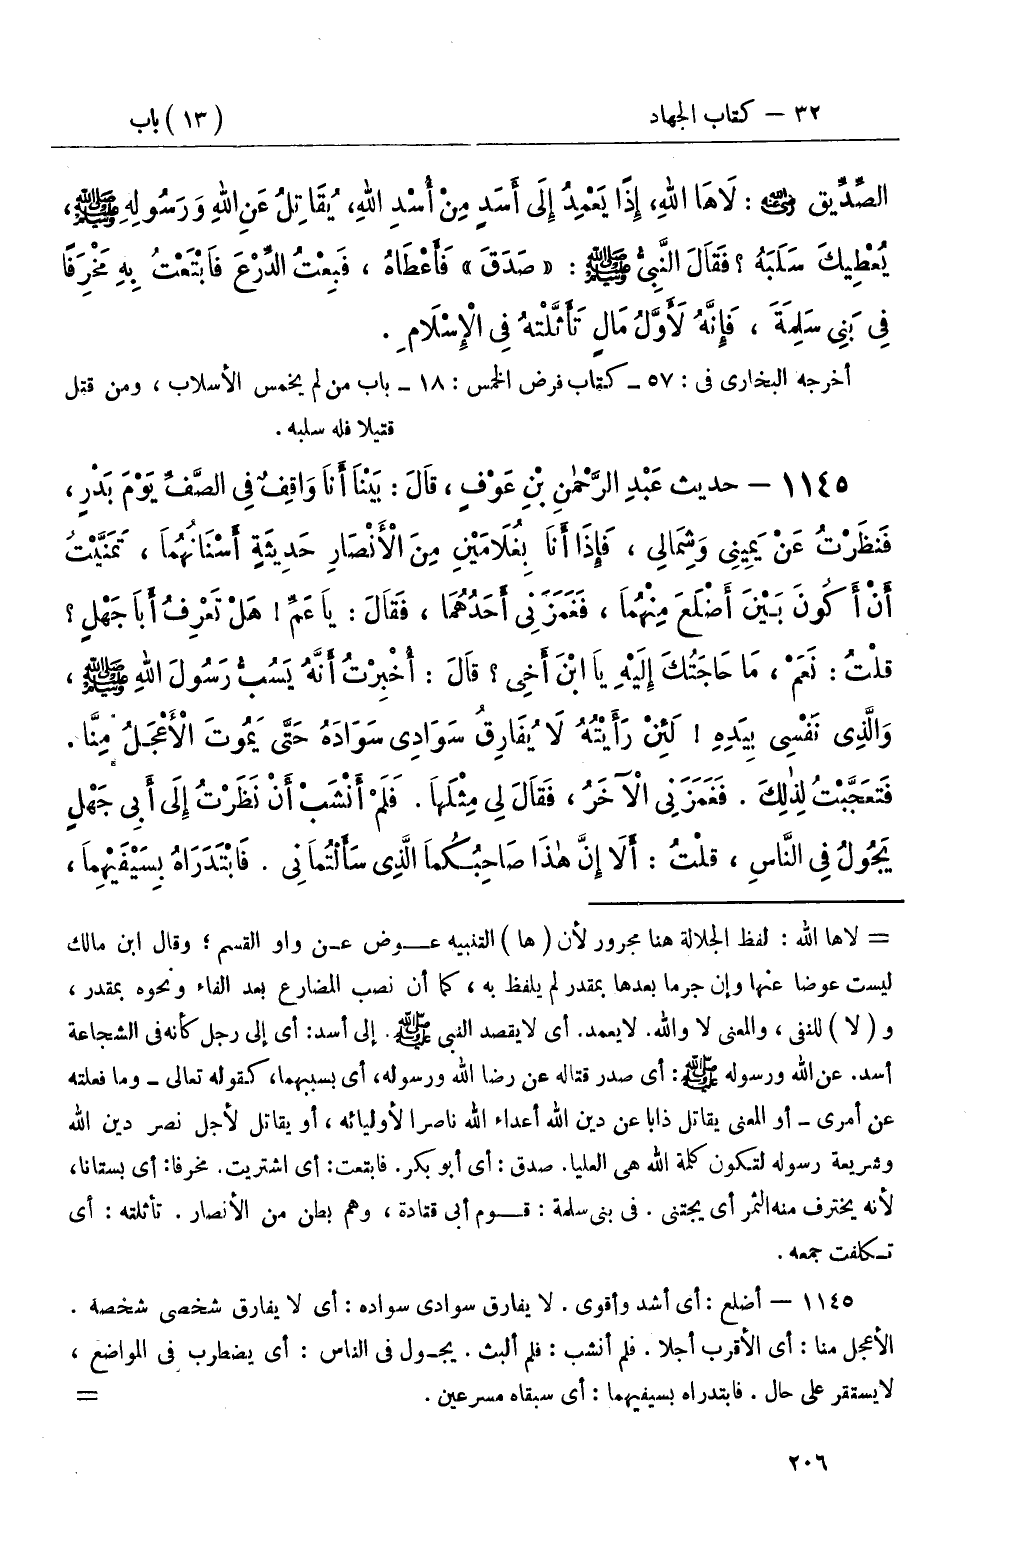 ٣٢ – كتاب الجهاد (١٣) باب
الصِّدِّيق ﵁ : لَاهَا اللهِ، إِذًا يَعْمِدُ إِلَى أَسَدٍ مِنْ أُسْدِ اللهِ، يُقَاتِلُ عَنِ اللهِ وَرَسُولِهِ ﷺ،
يُعْطِيكَ سَلَبَهُ ؟ فَقَالَ النَّبِيُّ ﷺ : « صَدَقَ » فَأَعْطَاهُ ، فَبِعْتُ الدِّرْعَ فَابْتَعْتُ بِهِ مَخْرِفًا
فِى بَنِي سَلِمَةَ ، فَإِنَّهُ لَأَوَّلُ مَالٍ تَأَثَّلْتهُ فِى الْإِسْلَامِ .
أخرجه البخارى فى : ٥٧ ـ كتاب فرض الخمس : ١٨ ـ باب من لم يخمس الأسلاب ، ومن قتل
قتيلا فله سلبه .
١١٤٥ – حديث عَبْدِ الرَّحْمٰنِ بْنِ عَوْفٍ ، قَالَ : بَيْنَا أَنَا وَاقِفٌ فِى الصَّفِّ يَوْمَ بَدْرٍ ،
فَنَظَرْتُ عَنْ يَمِينِى وَشِمَالِي ، فَإِذَا أَنَا بِغُلَامَيْنِ مِنَ الْأَنْصَارِ حَدِيثَةٍ أَسْنَانُهُمَا ، تَمَنَّيْتُ
أَنْ أَكُونَ بَيْنَ أَضْلَعَ مِنْهُمَا ، فَغَمَزَنِي أَحَدُهُمَا ، فَقَالَ : يَا عَمِّ ! هَلْ تَعْرِفُ أَبَا جَهْلٍ ؟
قلْتُ : نَعَمْ ، مَا حَاجَتُكَ إِلَيْهِ يَا ابْنَ أَخِى ؟ قَالَ : أُخْبِرْتُ أَنَّهُ يَسُبُّ رَسُولَ اللهِ ﷺ ،
وَالَّذِى نَفْسِى بِيَدِهِ ! لَئِنْ رَأَيْتُهُ لَا يُفَارِقُ سَوَادِى سَوَادَهُ حَتَّى يَمُوتَ الْأَعْجَلُ مِنَّا .
فَتَعَجَّبْتُ لِذٰلِكَ . فَغَمَزَنِي الْآخَرُ ، فَقَالَ لِي مِثْلَهَا . فَلَمْ أَنْشَبْ أَنْ نَظَرْتُ إِلَى أَبِي جَهْلٍ
يَجُولُ فِى النَّاسِ ، قلْتُ : أَلَا إِنَّ هٰذَا صَاحِبُكُمَا الَّذِى سَأَلْتُمَانِي . فَابْتَدَرَاهُ بِسَيْفَيْهِمَا ،
= لاها الله : لفظ الجلالة هنا مجرور لأن ( ها ) التنبيه عـــوض عـن واو القسم ؛ وقال ابن مالك
ليست عوضا عنها وإن جرما بعدها بمقدر لم يلفظ به ، كما أن نصب المضارع بعد الفاء ونحوه بمقدر ،
و ( لا ) للنفى ، والمعنى لا والله. لايعمد. أى لايقصد النبى ﷺ. إلى أسد: أى إلى رجل كأنه فى الشجاعة
أسد. عن الله ورسوله ﷺ: أى صدر قتاله عن رضا الله ورسوله، أى بسببهما، كقوله تعالى ـ وما فعلته
عن أمرى ـ أو المعنى يقاتل ذابا عن دين الله أعداء الله ناصرا لأوليائه ، أو يقاتل لأجل نصر دين الله
وشريعة رسوله لتكون كلمة الله هى العليا. صدق : أى أبو بكر. فابتعت: أى اشتريت. مخرفا: أى بستانا،
لأنه يخترف منه الثمر أى يجتنى . فى بنى سلمة : قـــوم أبى قتادة ، وهم بطن من الأنصار . تأثلته : أى
تـكلفت جمعه .
١١٤٥ – أضلع : أى أشد وأقوى . لا يفارق سوادى سواده : أى لا يفارق شخصى شخصه .
الأعجل منا : أى الأقرب أجلا . فلم أنشب : فلم ألبث . يجـول فى الناس : أى يضطرب فى المواضع ،
لايستقر على حال . فابتدراه بسيفيهما : أى سبقاه مسرعين . =
٢٠٦